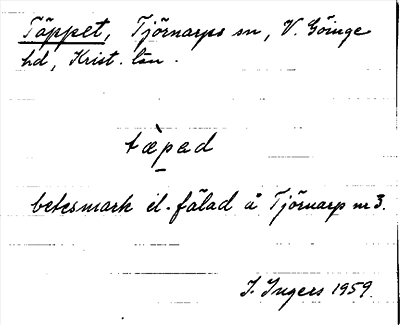 Täppet, Tjörnarps sn, V. Göinge
hd, Krist. län.
tæ̀pəd
betesmark el. fälad å Tjörnarp nr 3.
I. Ingers 1959.